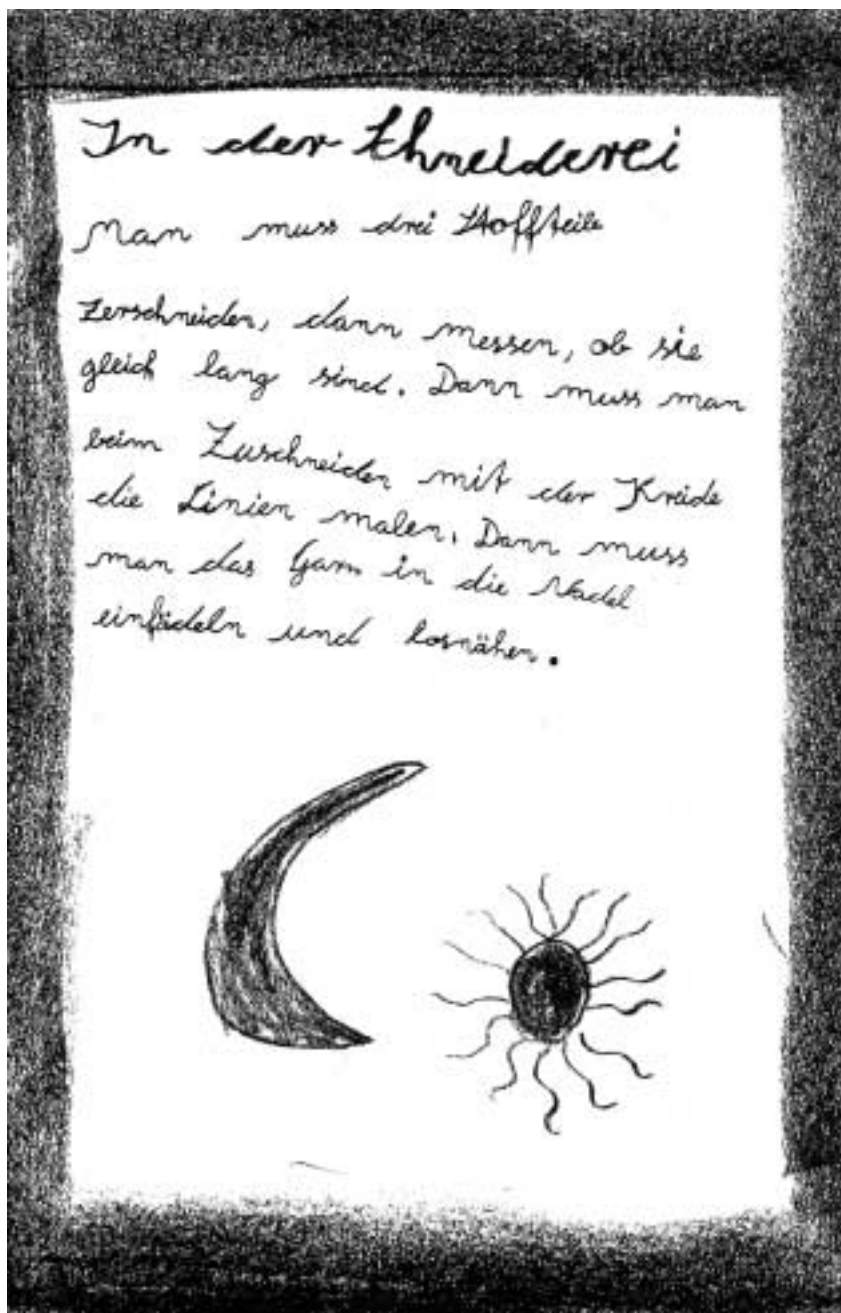 In der Schneiderei
Man muss drei Stoffteile
zerschneiden, dann messen, ob sie
gleich lang sind. Dann muss man
beim Zuschneiden mit der Kreide
die Linien malen. Dann muss
man das Garn in die Nadel
einfädeln und losnähen.